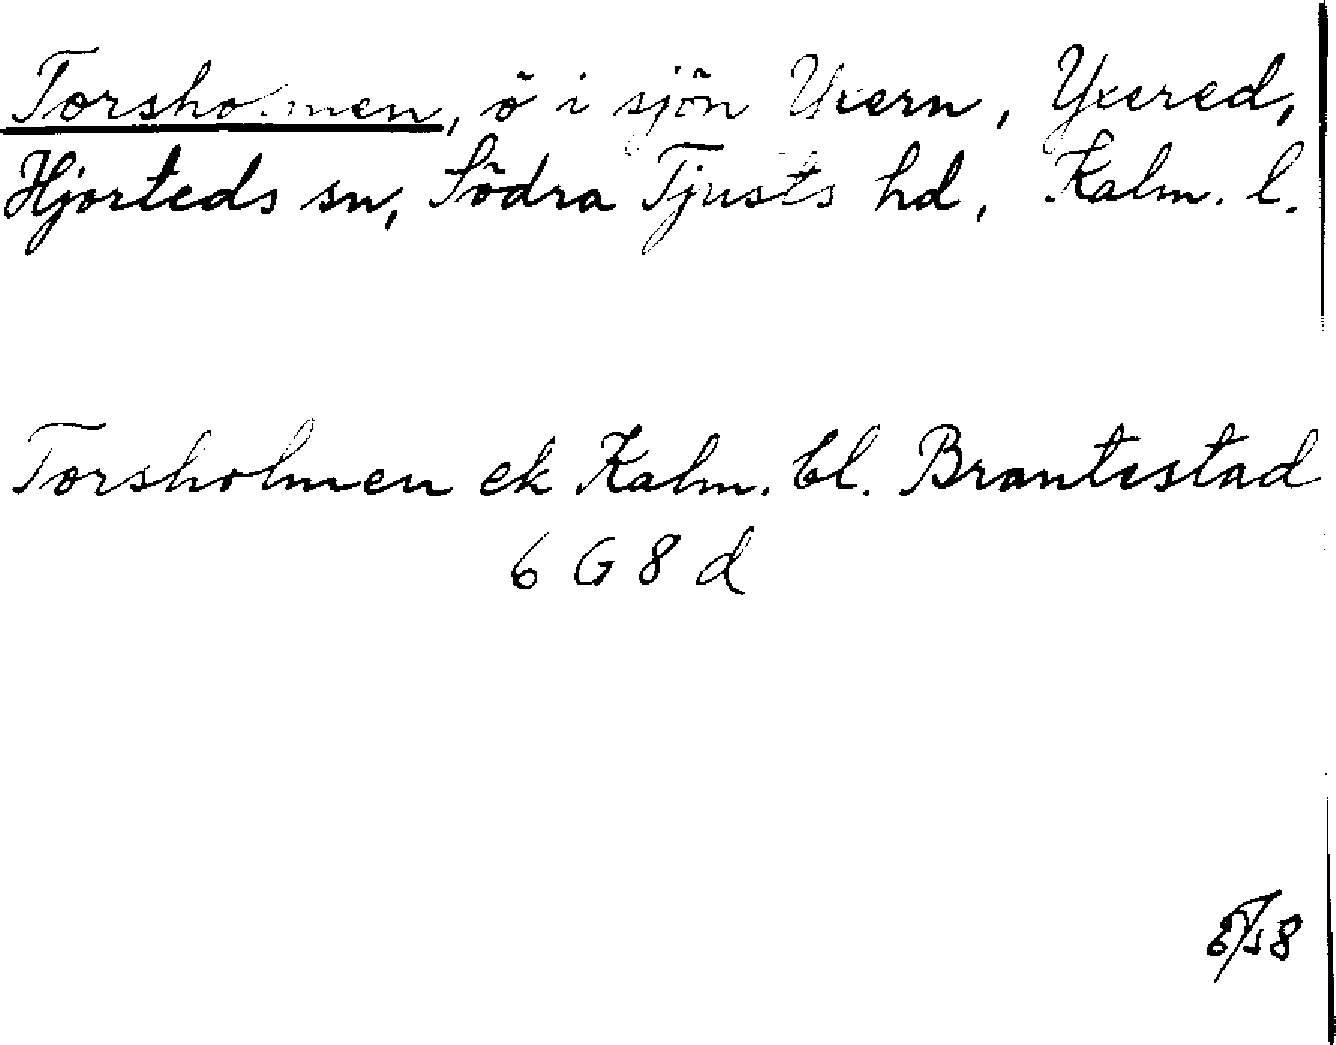 Torsholmen, ö i sjön Yxern, Yxered,
Hjorteds sn, Södra Tjusts hd, Kalm. l.
Torsholmen ek Kalm. bl. Brantestad
6 G 8 d